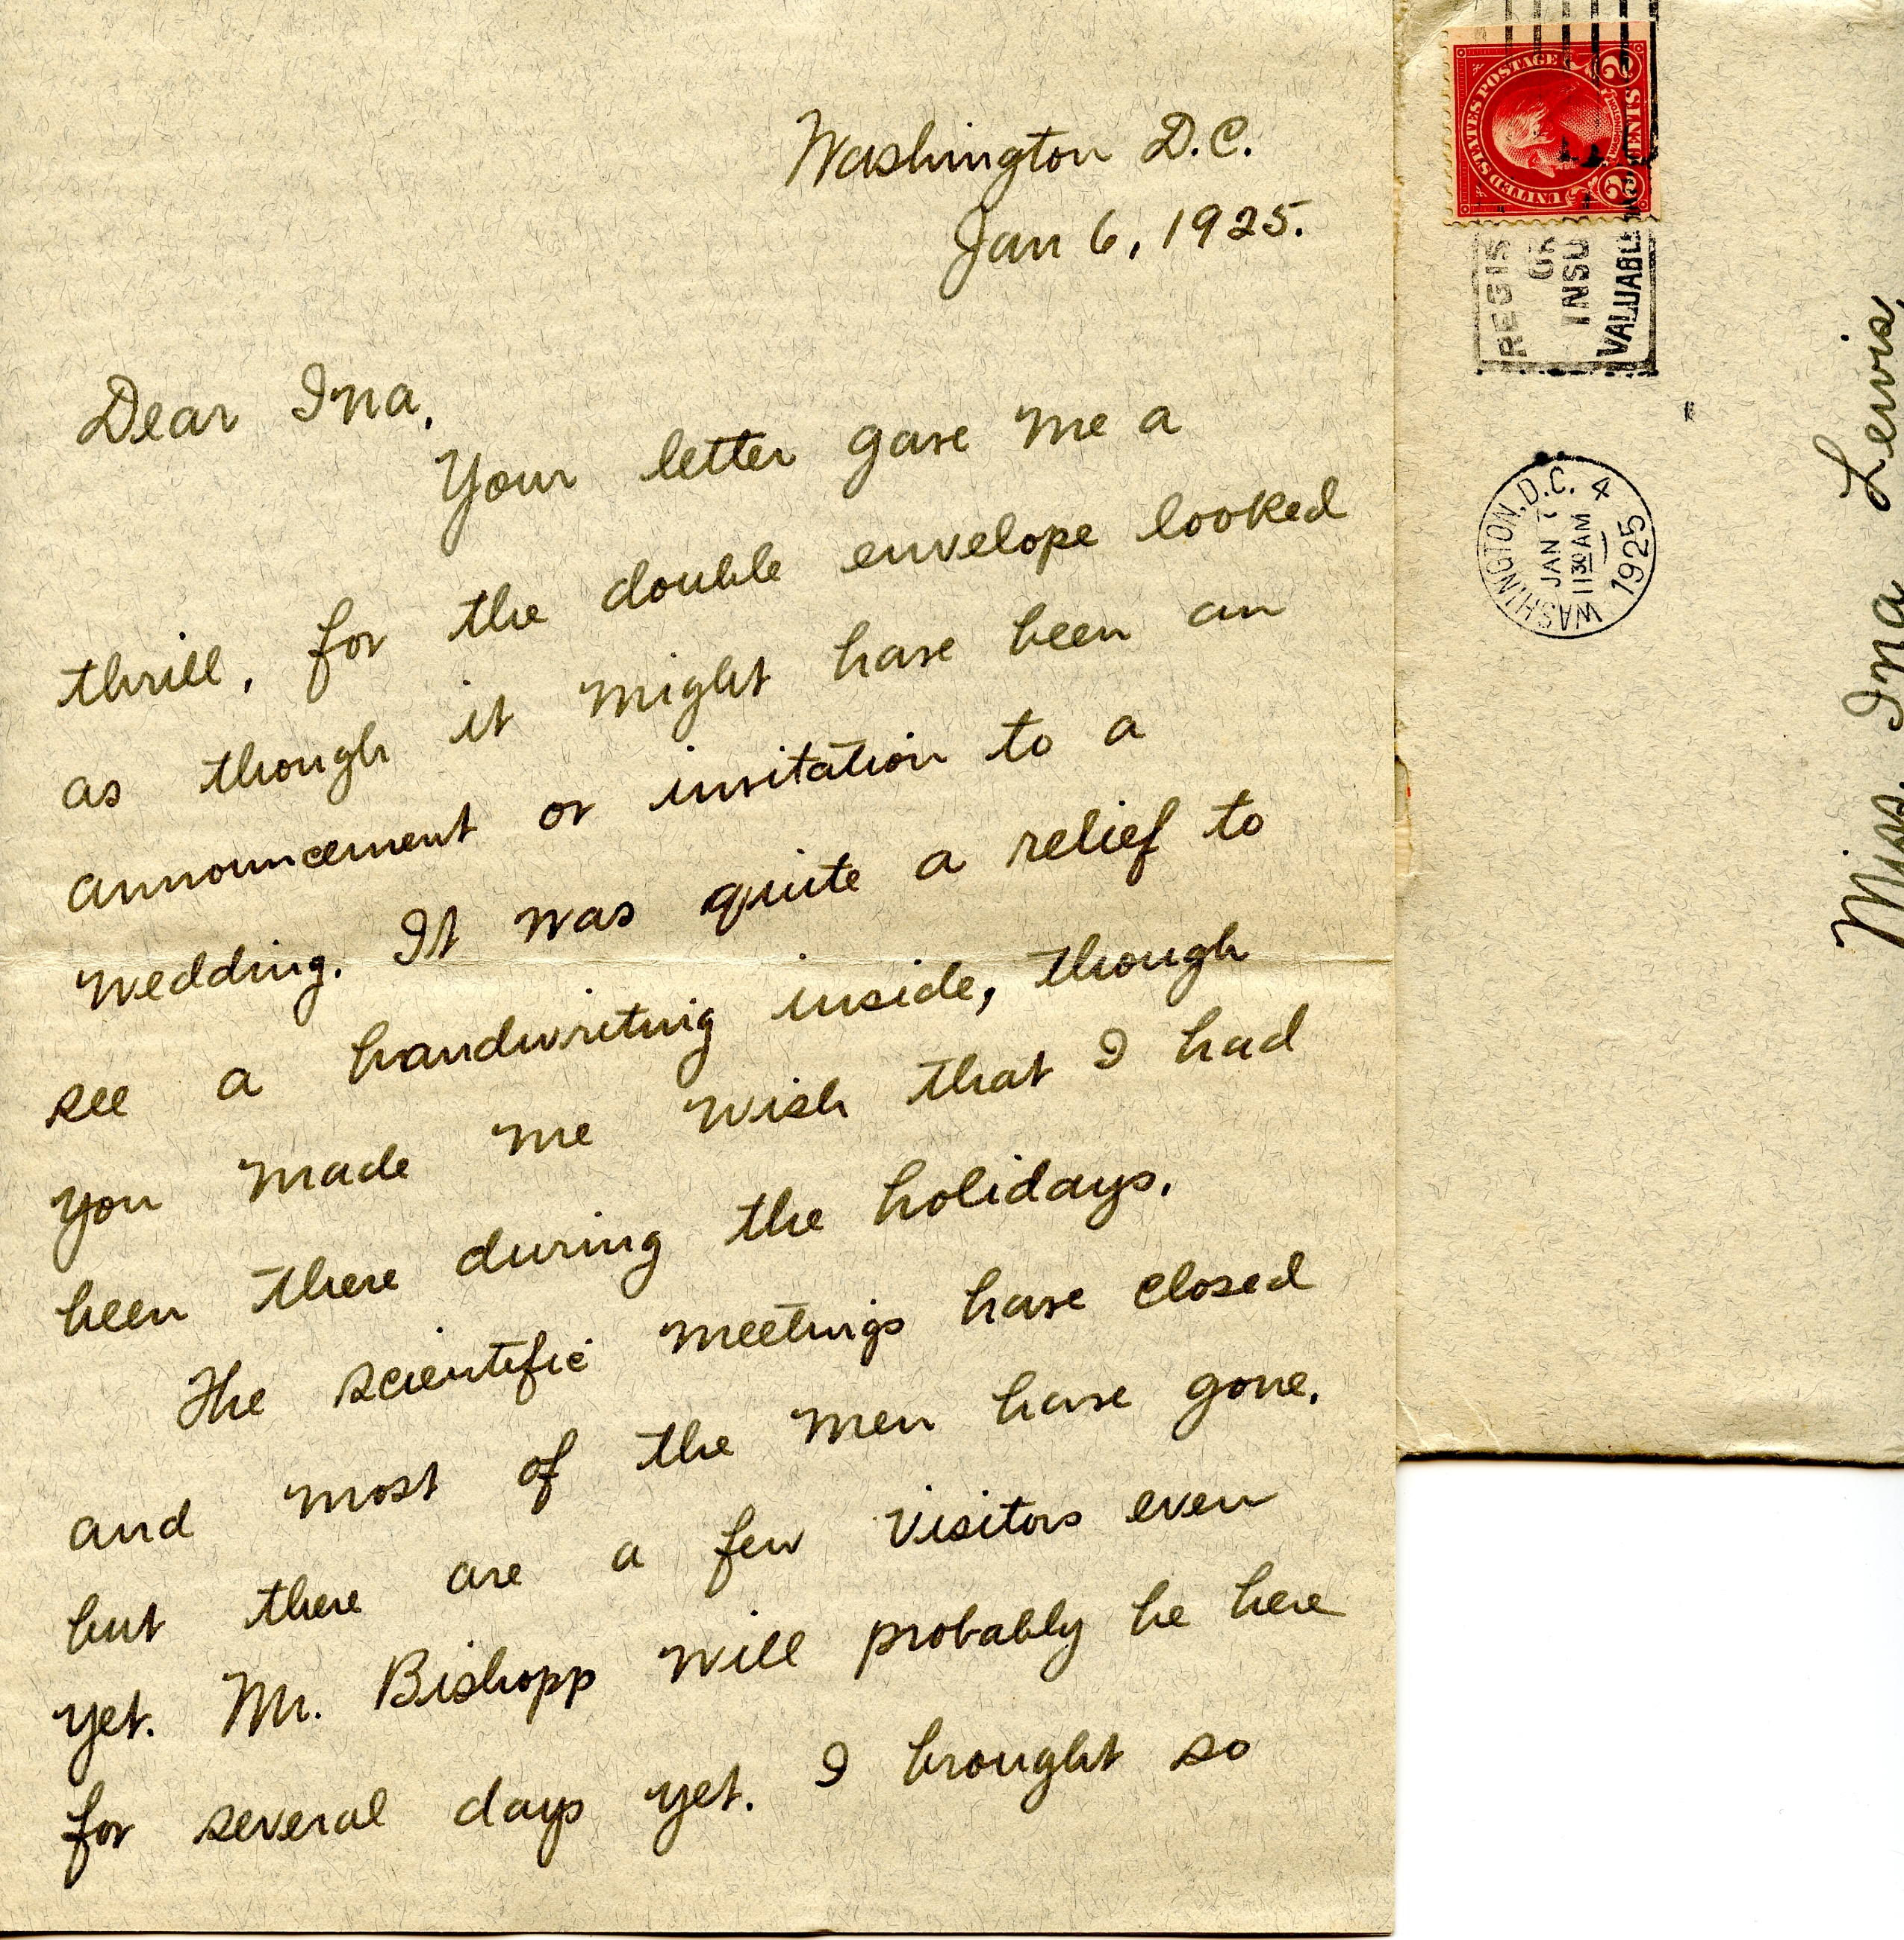 Washington D.C.
Jan 6, 1925.
Dear Ina,
Your letter gave me a
thrill, for the double envelope looked
as though it might have been an
announcement or invitation to a
wedding. It was quite a relief to
see a handwriting inside, though
you made me wish that I had
been there during the holidays.
The scientific meetings have closed
and most of the men have gone,
but there are a few visitors even
yet. Mr. Bishopp will probably be here
for several days yet. I brought so
UNITED STATES POSTAGE
2 CENTS 2
REGIS
OR
INSU
VALUABLE
WASHINGTON, D.C. 4
JAN
1130 AM
1925
Miss. Ina Lewis,